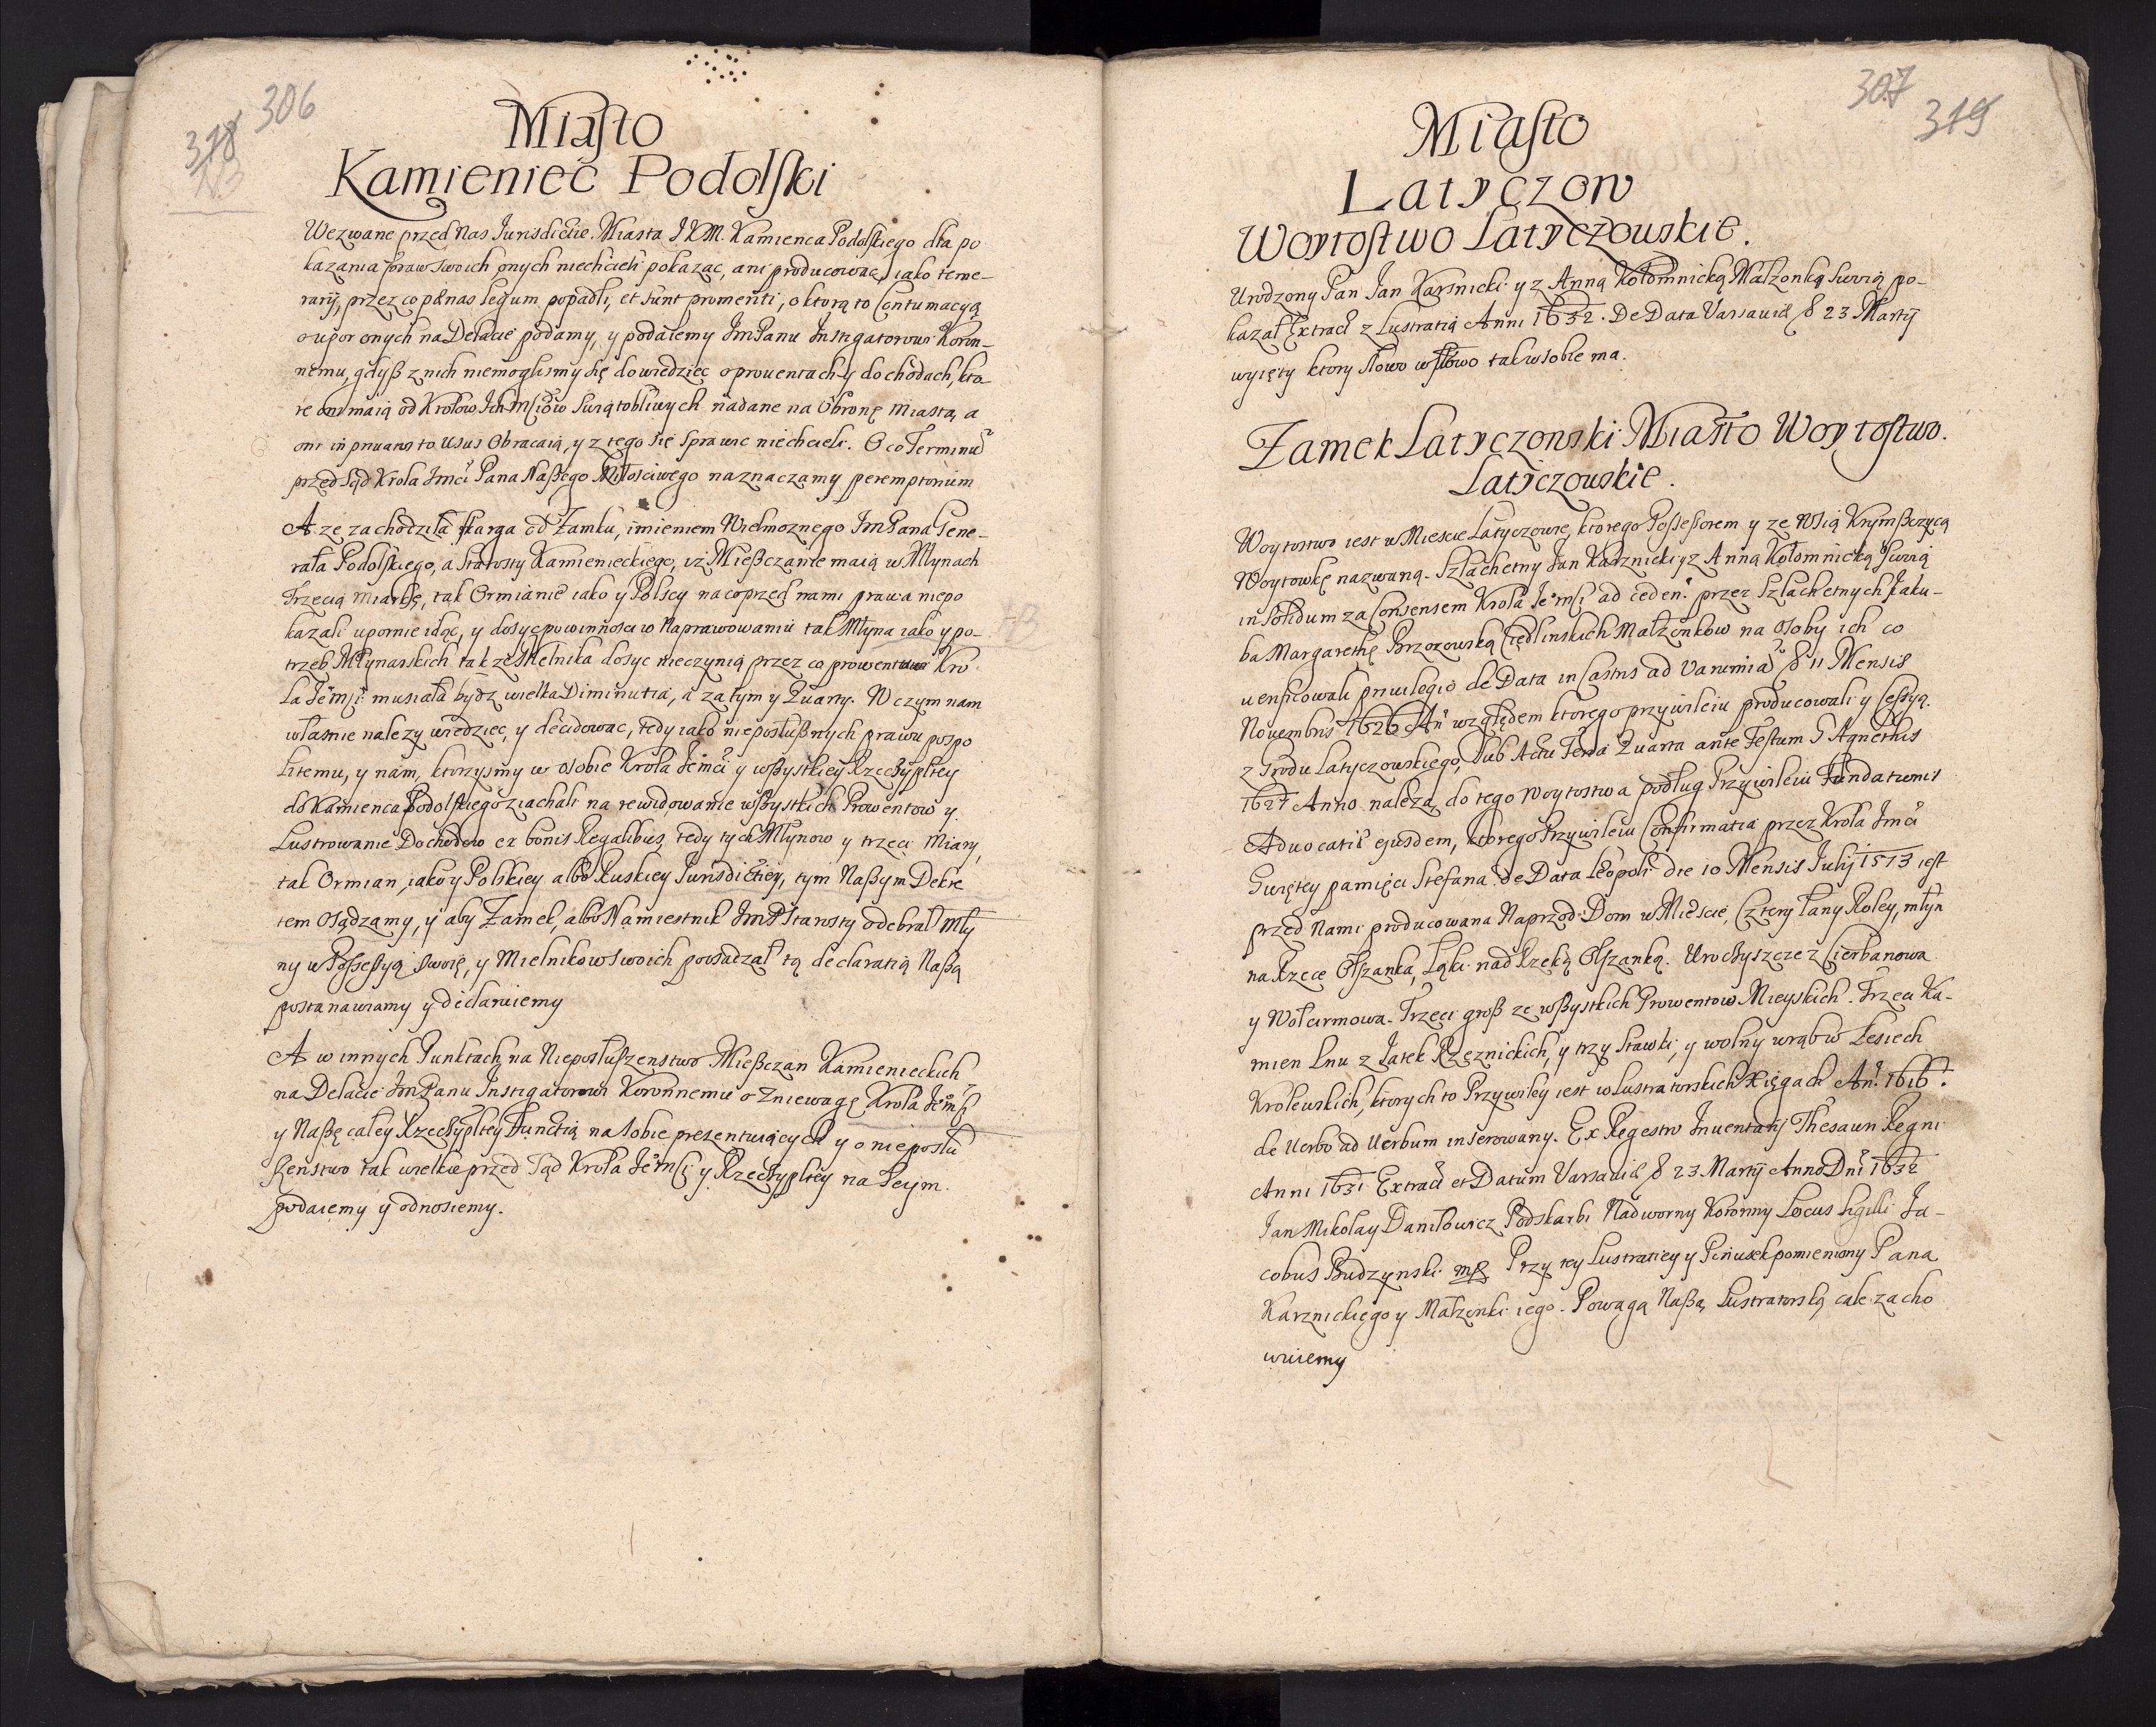 306
318
Miasto
Kamieniec Podolski
Wezwane przed Nas Iurisdictie. Miasta J K M. Kamienca Podolskiego dla po
kazania spraw swoich onych niechcieli pokazac, ani producowac, iako teme-
rarij, przez co pænas legum popadli, et sunt promeriti, o ktorą to Contumacyą
o upor onych na Delacie podamy, y podaiemy Jm Panu Instigatorowi Koron-
nemu, gdyß z nich niemoglismy się dowiedziec o prouentach y dochodach, kto-
re oni maią od Krolow Ich Mciow Swiątobliwych nadane na Obronę Miasta, a
oni in priuatos to usus Obracaią, y z tego się sprawic niechcieli. O co Terminũ
przed Sąd Krola Jmci Pana Naßego Miłosciwego naznaczamy peremptorium
A ze zachodziła skarga od Zamku, imieniem Wielmoznego Jm Pana Gene-
rała Podolskiego, a Starosty Kamienieckiego, iz Mießczanie maią w Młynach
Trzecią miarkę, tak Ormianie iako y Polscy na co przed nami prawa niepo
kazali upornie idąc, y dosyc powinnosci w Naprawowaniu tak Młyna iako y po-
trzeb Młynarskich takze Mielnika dosyc nieczynią przez co prowentom Kro
la Jemci musiała bydz wielka Diminutia, a zatym y Quarty. W czym nam
własnie nalezy wiedziec, y decidowac, tedy iako nieposłußnych prawu pospo
litemu, y nam, ktorzysmy w osobie Krola Jemci y wßystkiey Rzeczyplitey
do Kamienca Podolskiego ziachali na rewidowanie wßystkich Prowentow y
Lustrowanie Dochodow ex bonis Regalibus, tedy tych Młynow y trzeci Miary,
tak Ormian, iako y Polskiey albo Ruskiey Jurisdictiey, tym Naßym Dekre
tem osądzamy, y aby Zamek, albo Namiestnik Jm P Starosty odebrał Mły
ny w Poßeßyą swoię, y Mielnikow swoich posadzał tą declaratią Naßą
postanawiamy y declaruiemy
A w innych Punktach na Nieposłußenstwo Mießczan Kamienieckich
na Delacie Jm Panu Instigatorowi Koronnemu o Zniewagę Krola Jemci
y Naßę całey Rzeczyplitey Functią na sobie prezentuiących y o nieposłu
ßenstwo tak wielkie przed Sąd Krola Jemci y Rzeczyplitey na Seym
podaiemy y odnosiemy.
307
319
Miasto
Latyczow
Woytostwo Latyczowskie.
Urodzony Pan Jan Karsnicki y z Anną Kołomnicką Małzonką swoią po-
kazał Extract z Lustratią Anni 1632. De Data Varsauiæ & 23 Martij
wyięty ktory słowo w słowo tak w sobie ma.
Zamek Latyczowski Miasto Woytostwo.
Latyczowskie.
Woytostwo iest w Miescie Latyczowie, ktorego Poßeßorem y ze Wsią Krymßczycą
Woytowkę nazwaną. Szlachetny Jan Karznicki y z Anną Kołomnicką Swoią
in solidum za Consensem Krola Jemci ad ceden. przez Szlachetnych Jaku-
ba Margarethę Brzozowską Ciędlinskich Małzonkow na osoby ich co
uerificowali priuilegiо de Data in Castris ad Varumiã & 11 Mensis
Nouembris 1626 An względem ktorego przywileiu producowali y Ceßyą
z Grodu Latyczowskiego, sub Actu Feria Quarta ante Festum S Agnethis
1627 Anno nalezą do tego Woytostwa podług Przywileiu Fundationis
Aduocatiæ eiusdem, ktorego Przywileiu Confirmatia przez Krola Jmci
Swiętey pamięci Stefana. de Data Leopoli die 10 Mensis Julij 1573 iest
przed Nami producowana Naprzod. Dom w Miescie, Cztery Łany Roley, młyn
na Rzece Olszanka, Łąki nad Rzeką Olszanką. Uroczyszcze z Cierbanowa
y Wołcirmowa. Trzeci groß ze wßystkich Prowentow Mieyskich. Trzeci Ka-
mien Lnu z Jatek Rzeznickich, y trzy stawki, y wolny wrąb w Lesiech
Krolewskich, ktorych to Przywiley iest w Lustratorskich Xięgach An. 1616.
de Verbo ad Verbum inserowany. Ex Regestro Inuentarij Thesauri Regni
Anni 1631 Extract et Datum Varsauiæ & 23 Martij Anno Dni 1632
Jan Mikołay Daniłowicz Podskarbi Nadworny Koronny Locus sigilli Ja-
cobus Budzynski mp Przy tey Lustratiey y Pinusek pomieniony Pana
Karznickiego y Małzonki iego. Powagą Naßą Lustratorską cale zacho
wuiemy